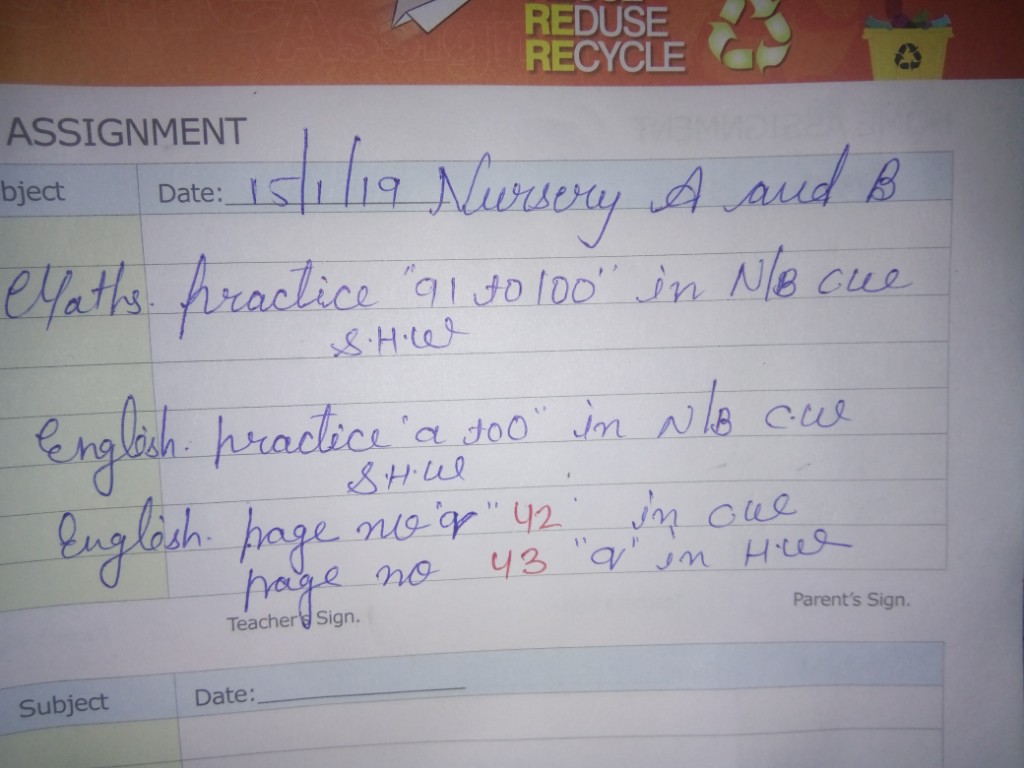 REDUSE
RECYCLE
ASSIGNMENT
bject Date: 15/1/19 Nursery A and B
Maths. practice "91 to 100" in N/B cw
S.H.W
English. practice "a to o" in N/B C.W
S.H.W
English. page no "q" 42 in cw
page no 43 "q" in H.W
Teacher's Sign. Parent's Sign.
Subject Date: